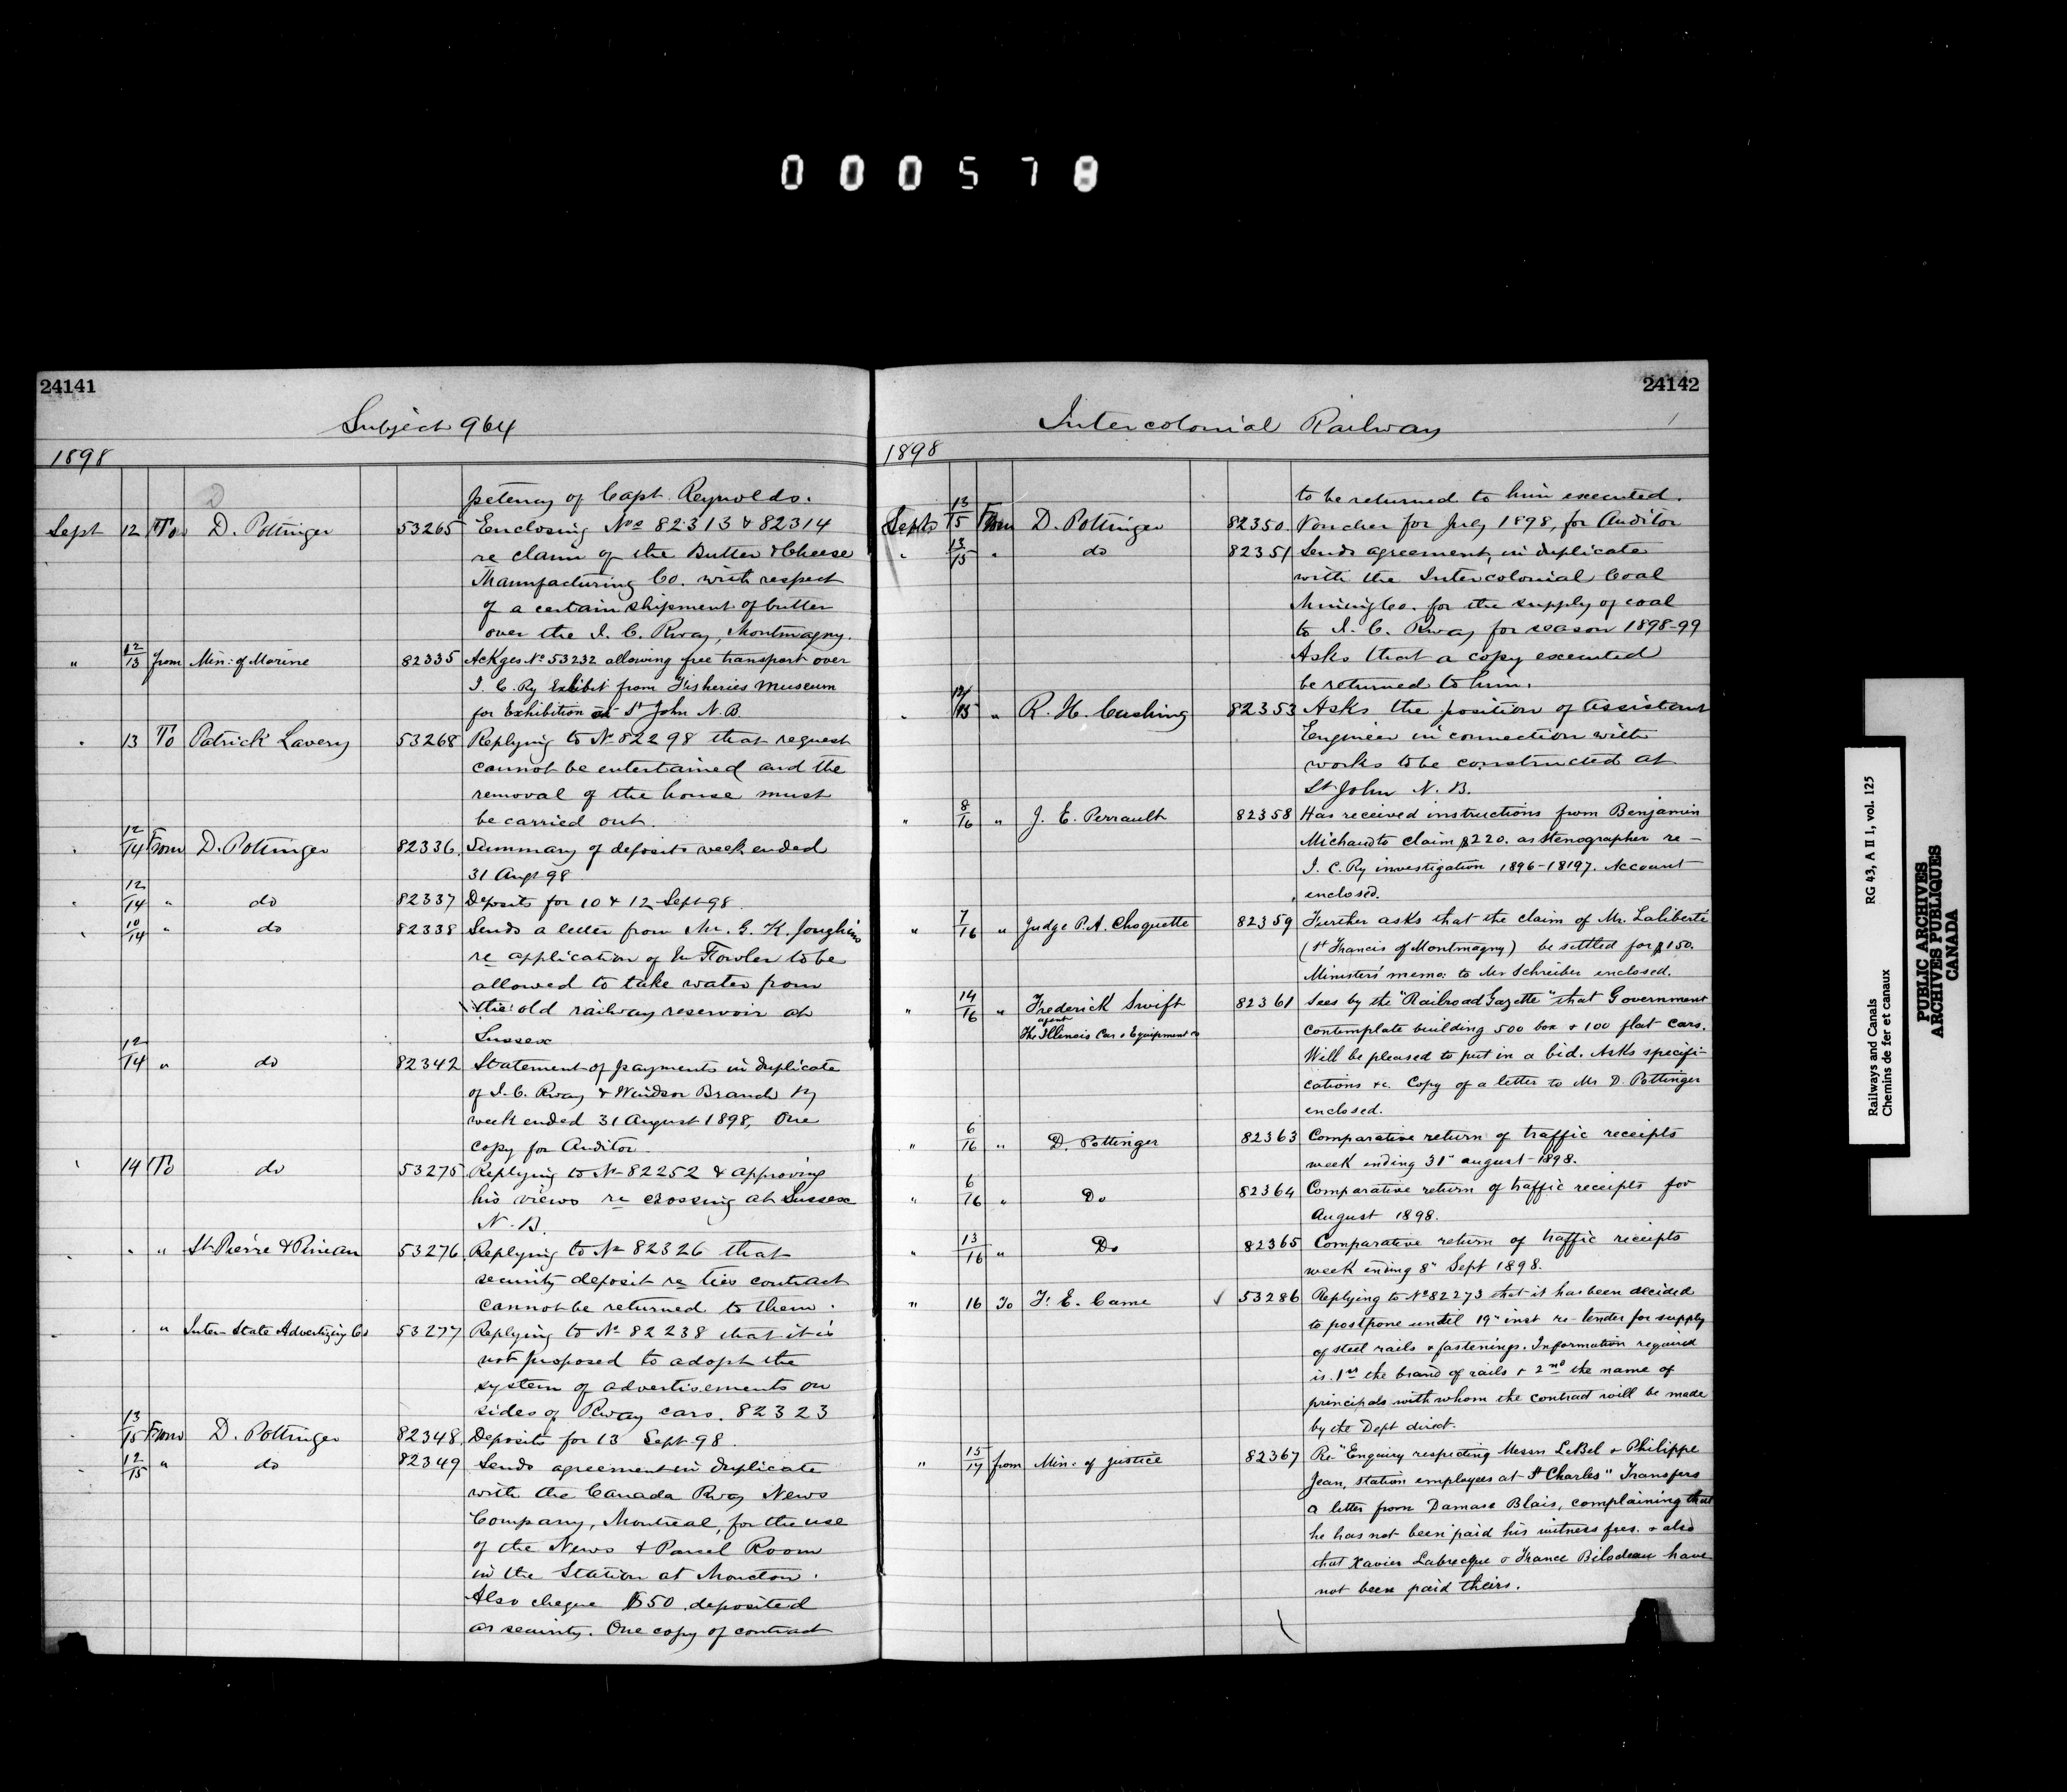 000578
24141
Subject 964
1898
petency of Capt. Reynolds.
Sept 12 To D. Pottinger 53265 Enclosing Nos 82313 & 82314
re claim of the Butter & Cheese
Manufacturing Co. with respect
of a certain shipment of butter
over the I. C. Rway, Montmagny.
" 12/13 from Min: of Marine 82335 Ackges No 53232 allowing free transport over
I. C. Ry Exhibit from Fisheries Museum
for Exhibition at St John N.B.
" 13 To Patrick Lavery 53268 Replying to No 82298 that request
cannot be entertained and the
removal of the house must
be carried out.
" 12/14 From D. Pottinger 82336 Summary of deposits week ended
31 Augt 98
" 12/14 " do 82337 Deposits for 10 & 12 Sept 98.
" 10/14 " do 82338 Sends a letter from Mr. G. K. Joughins
re application of Mr Fowler to be
allowed to take water from
the old railway reservoir at
Sussex
12/14 " do 82342 Statement of payments in duplicate
of I. C. Rway & Windsor Branch Ry
week ended 31 August 1898, One
copy for Auditor
" 14 To do 53275 Replying to No 82252 & approving
his views re crossing at Sussex
N. B.
" " " St Pierre & Pineau 53276 Replying to No 82326 that
security deposit re ties contract
cannot be returned to them.
" " " Inter-State Advertizing Co 53277 Replying to No 82238 that it is
not proposed to adopt the
system of advertisements on
sides of Rway cars. 82323
" 13/15 From D. Pottinger 82348 Deposits for 13 Sept 98.
" 12/15 " do 82349 Sends agreement in duplicate
with the Canada Rway News
Company, Montreal, for the use
of the News & Parcel Room
in the Station at Moncton.
Also cheque $50 deposited
as security. One copy of contract
24142
Intercolonial Railway
1898
to be returned to him executed.
Sept 13/15 From D. Pottinger 82350 Voucher for July 1898, for Auditor
" 13/15 " do 82351 Sends agreement, in duplicate
with the Intercolonial Coal
Mining Co. for the supply of coal
to I. C. Rway for season 1898-99
Asks that a copy executed
be returned to him.
" 12/15 " R. H. Cushing 82353 Asks the position of Assistant
Engineer in connection with
works to be constructed at
St John N. B.
" 8/16 " J. E. Perrault 82358 Has received instructions from Benjamin
Michaud to claim $220. as Stenographer re-
I. C. Ry investigation 1896-18197. Account
enclosed.
" 7/16 " Judge P. A. Choquette 82359 Further asks that the claim of Mr. Laliberté
(St Francis of Montmagny) be settled for $150.
Ministers' memo: to Mr Schreiber enclosed.
" 14/16 " Frederick Swift 82361 Sees by the "Railroad Gazette" that Government
agent
The Illinois Car & Equipment Co contemplate building 500 box & 100 flat cars.
Will be pleased to put in a bid. Asks specifi-
cations &c. Copy of a letter to Mr D. Pottinger
enclosed.
" 6/16 " D. Pottinger 82363 Comparative return of traffic receipts
week ending 31st august 1898.
" 6/16 " Do 82364 Comparative return of traffic receipts for
August 1898.
" 13/16 " Do 82365 Comparative return of traffic receipts
week ending 8" Sept 1898.
" 16 To F. E. Came ✓ 53286 Replying to No 82273 that it has been decided
to postpone until 19" inst re- tender for supply
of steel rails & fastenings. Information required
is. 1st the brand of rails & 2nd the name of
principals with whom the contract will be made
by the Dept direct.
" 15/17 from Min: of Justice 82367 Re "Enquiry respecting Messrs LeBel & Philippe
Jean, station employees at St Charles" Transfers
a letter from Damase Blais, complaining that
he has not been paid his witness fees. & also
that Xavier Labrecque & France Bilodeau have
not been paid theirs.
Railways and Canals RG 43, A II 1, vol. 125
Chemins de fer et canaux
PUBLIC ARCHIVES
ARCHIVES PUBLIQUES
CANADA